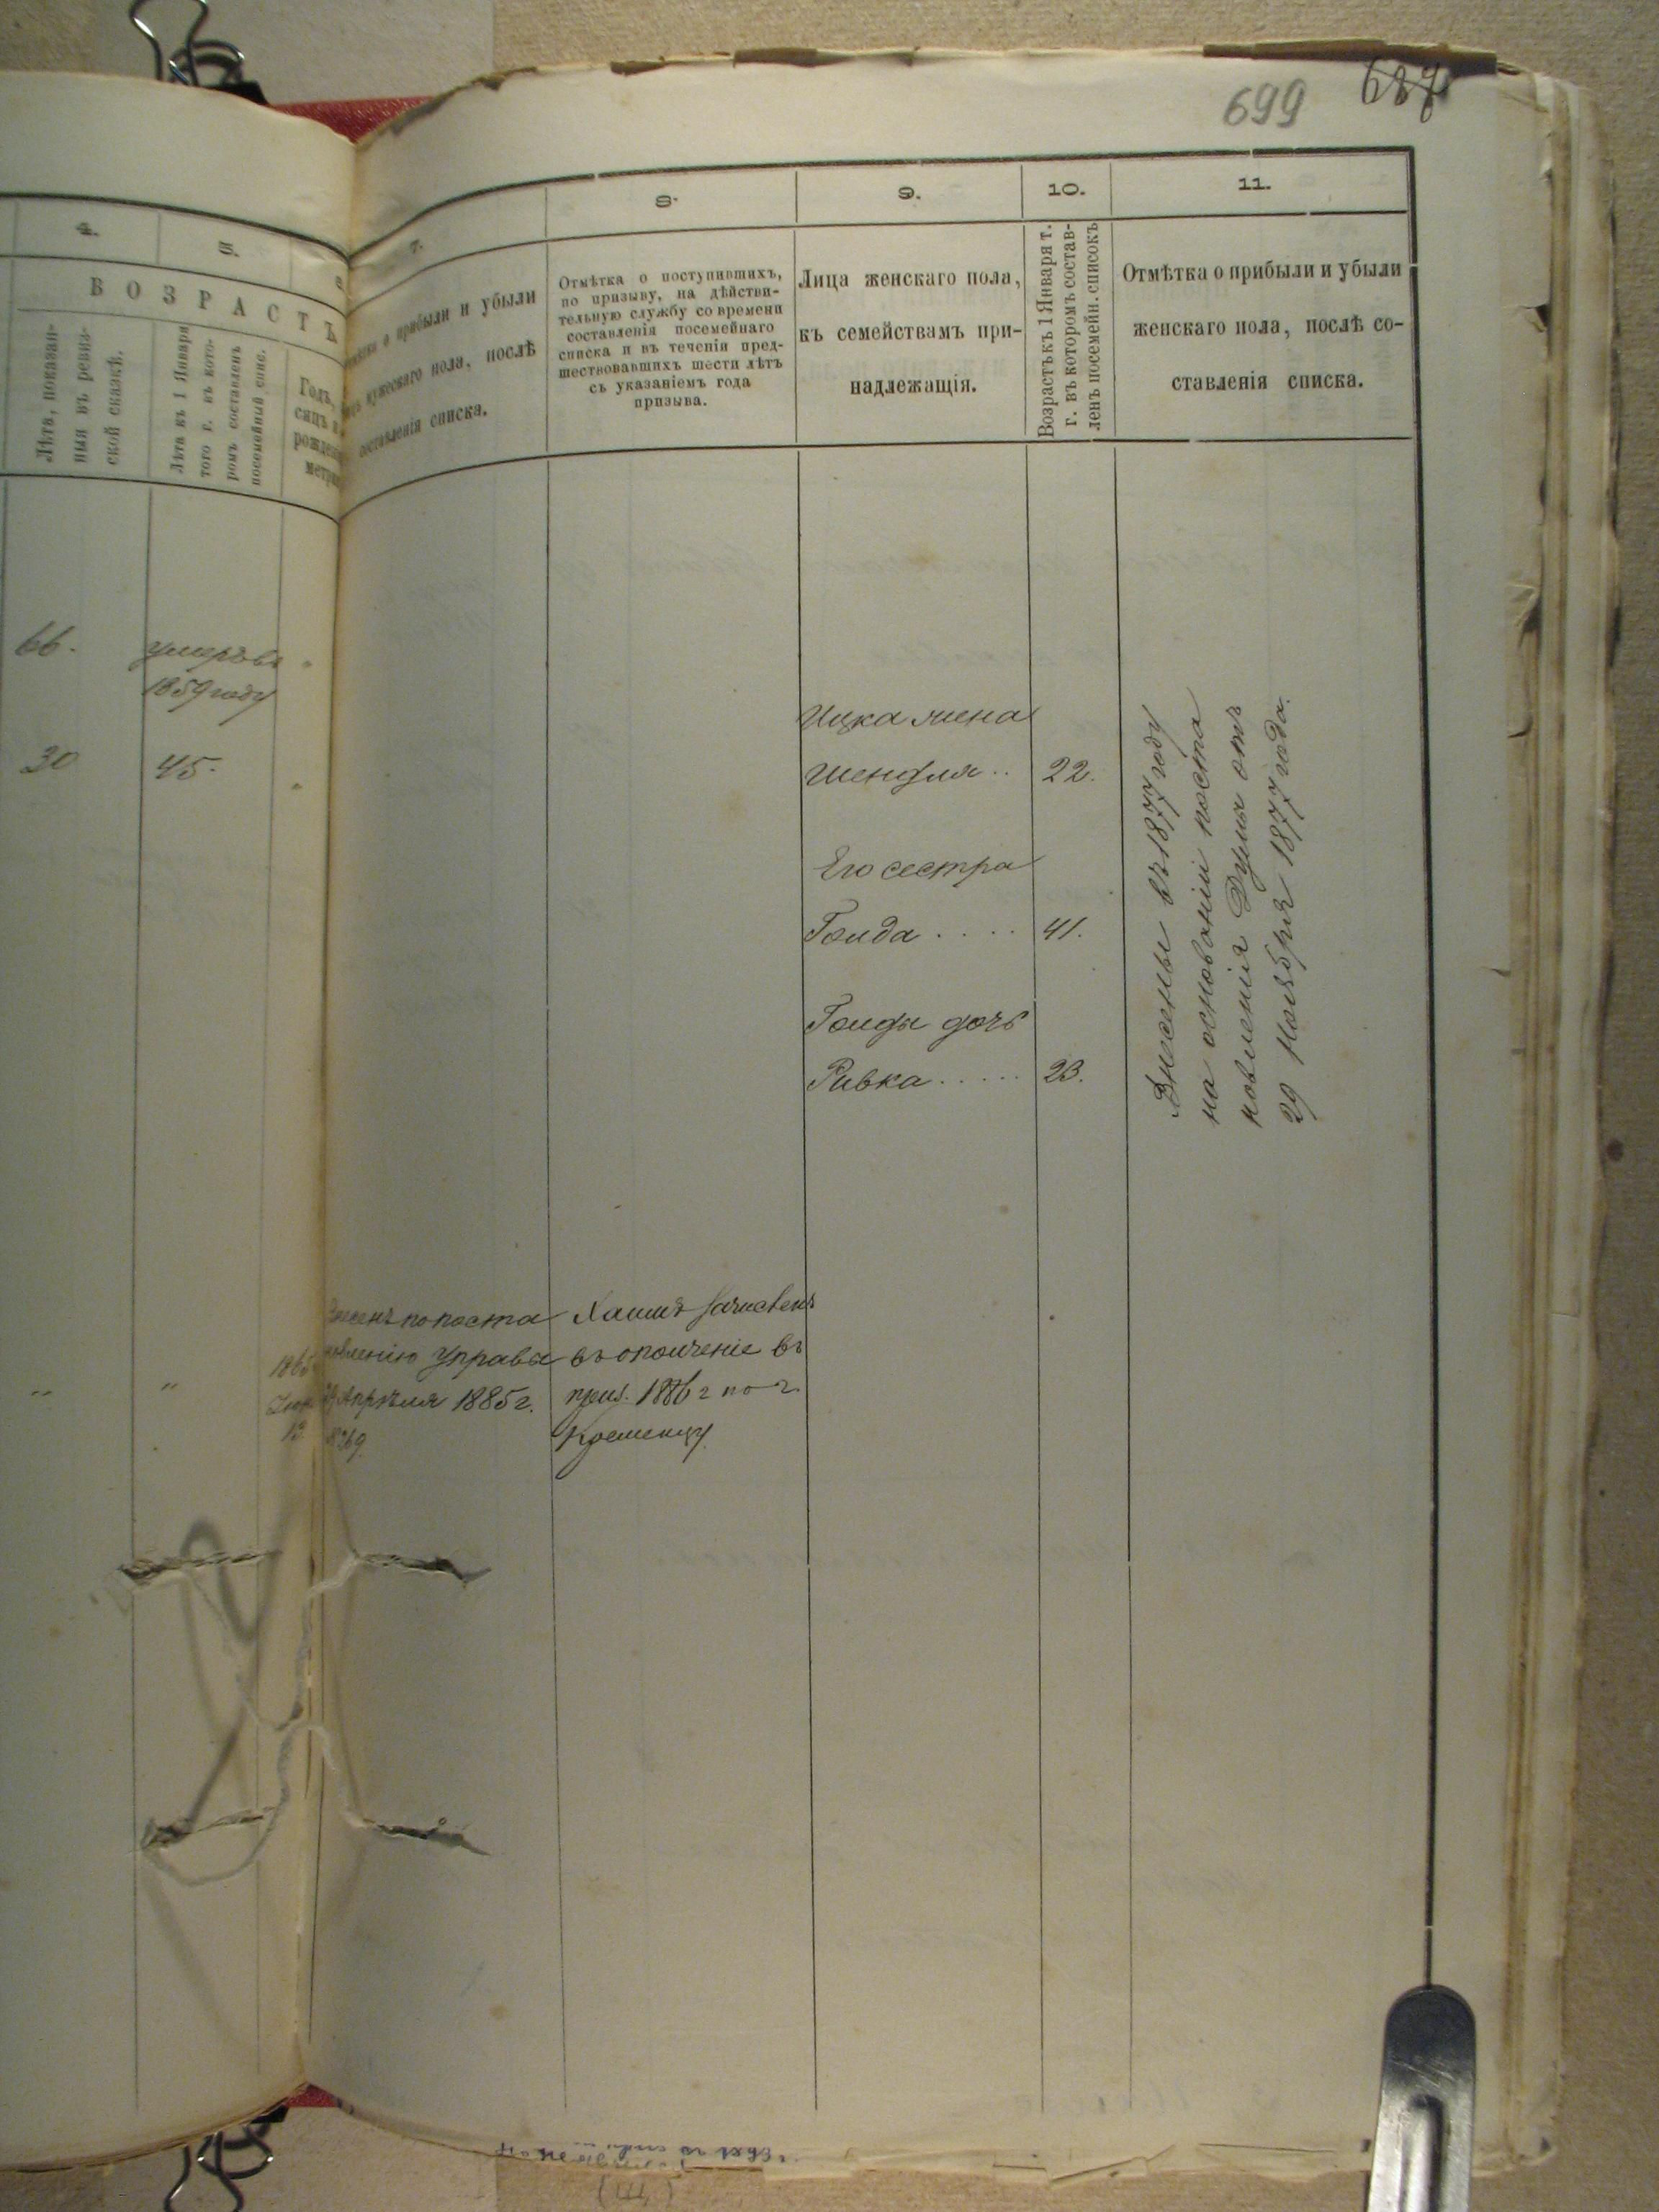 699
4.
5.
7.
8.
9.
10.
11.
ВОЗРАСТЪ
Лѣта, показан-
ныя въ ревиз-
ской сказкѣ.
Лѣта къ 1 Января
того г. въ кото-
ромъ составленъ
посемейный спис.
Годъ,
о прибыли и убыли
мужескаго пола, послѣ
составленія списка.
Отмѣтка о поступившихъ,
по призыву, на дѣйстви-
тельную службу со времени
составленія посемейнаго
списка и въ теченіи пред-
шествовавшихъ шести лѣтъ
съ указаніемъ года
призыва.
Лица женскаго пола,
къ семействамъ при-
надлежащія.
Возрастъ къ 1 Января т.
г. въ которомъ состав-
ленъ посемейн. списокъ
Отмѣтка о прибыли и убыли
женскаго пола, послѣ со-
ставленія списка.
66.
умеръ въ
1859 году
30
45.
Ицка жена
Шендля .. 22.
Его сестра
Голда .... 41.
Голды дочь
Ривка ..... 23.
Внесены въ 1877 году
на основаніи поста
новленія Думы отъ
29 Ноября 1877 года.
Внесенъ по поста
новленію Управы
Апрѣля 1885 г.
Хаимъ зачисленъ
въ ополченіе въ
приз. 1886 г по г.
Кременцу.